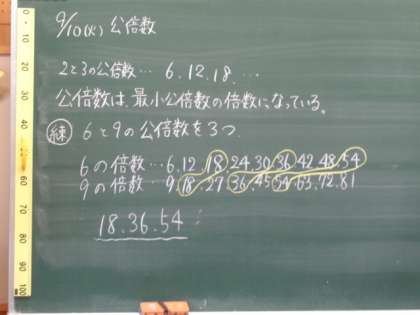 9/10(火) 公倍数
2と3の公倍数… 6.12.18.…
公倍数は、最小公倍数の倍数になっている。
練 6と9の公倍数を3つ.
6の倍数…6.12.18.24.30.36.42.48.54
9の倍数…9.18.27.36.45.54.63.72.81
18.36.54
0
10
20
30
40
50
60
70
80
90
100